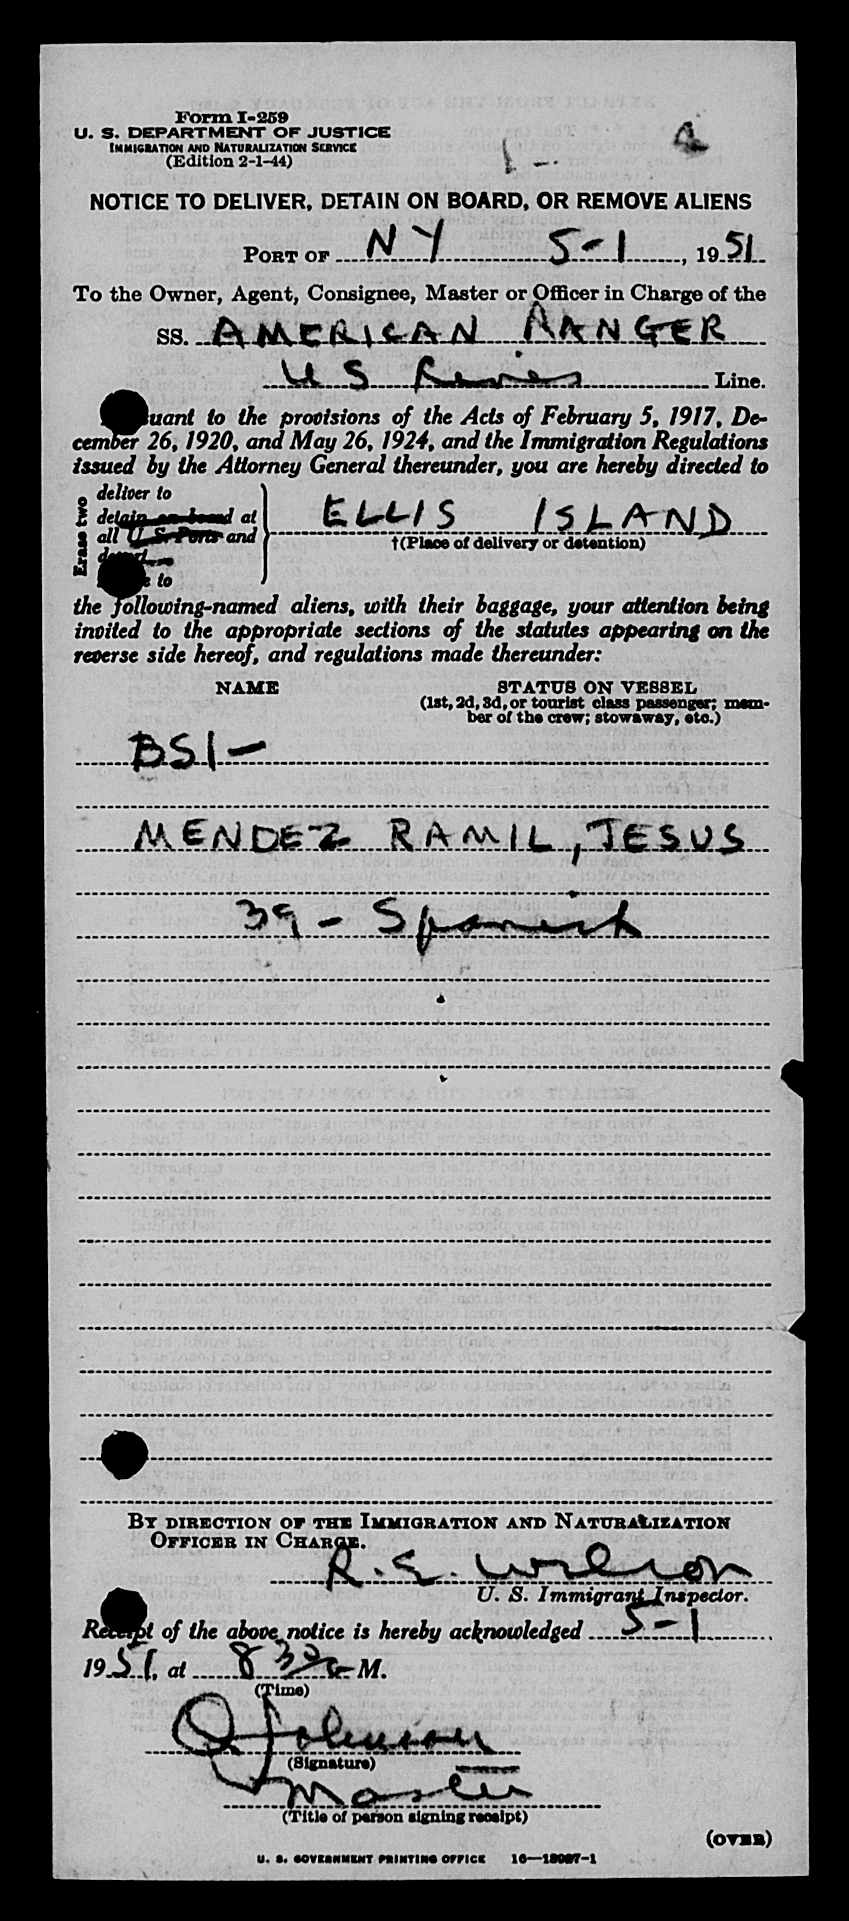 Form I-259
U. S. DEPARTMENT OF JUSTICE
IMMIGRATION AND NATURALIZATION SERVICE
(Edition 2-1-44)
NOTICE TO DELIVER, DETAIN ON BOARD, OR REMOVE ALIENS
PORT OF NY 5-1, 1951
To the Owner, Agent, Consignee, Master or Officer in Charge of the
SS. AMERICAN RANGER
U S Line.
uant to the provisions of the Acts of February 5, 1917, De-
cember 26, 1920, and May 26, 1924, and the Immigration Regulations
issued by the Attorney General thereunder, you are hereby directed to
Erase two
deliver to
detain on board at
all U. S. Ports and
to
ELLIS ISLAND
†(Place of delivery or detention)
the following-named aliens, with their baggage, your attention being
invited to the appropriate sections of the statutes appearing on the
reverse side hereof, and regulations made thereunder:
NAME STATUS ON VESSEL
(1st, 2d, 3d, or tourist class passenger; mem-
ber of the crew; stowaway, etc.)
BSI-
MENDEZ RAMIL, JESUS
39 - Spanish
BY DIRECTION OF THE IMMIGRATION AND NATURALIZATION
OFFICER IN CHARGE.
R. E. Wilson
U. S. Immigrant Inspector.
Receipt of the above notice is hereby acknowledged 5-1
1951, at 8 30 a M.
(Time)
Johnson
(Signature)
Master
(Title of person signing receipt)
(OVER)
U. S. GOVERNMENT PRINTING OFFICE